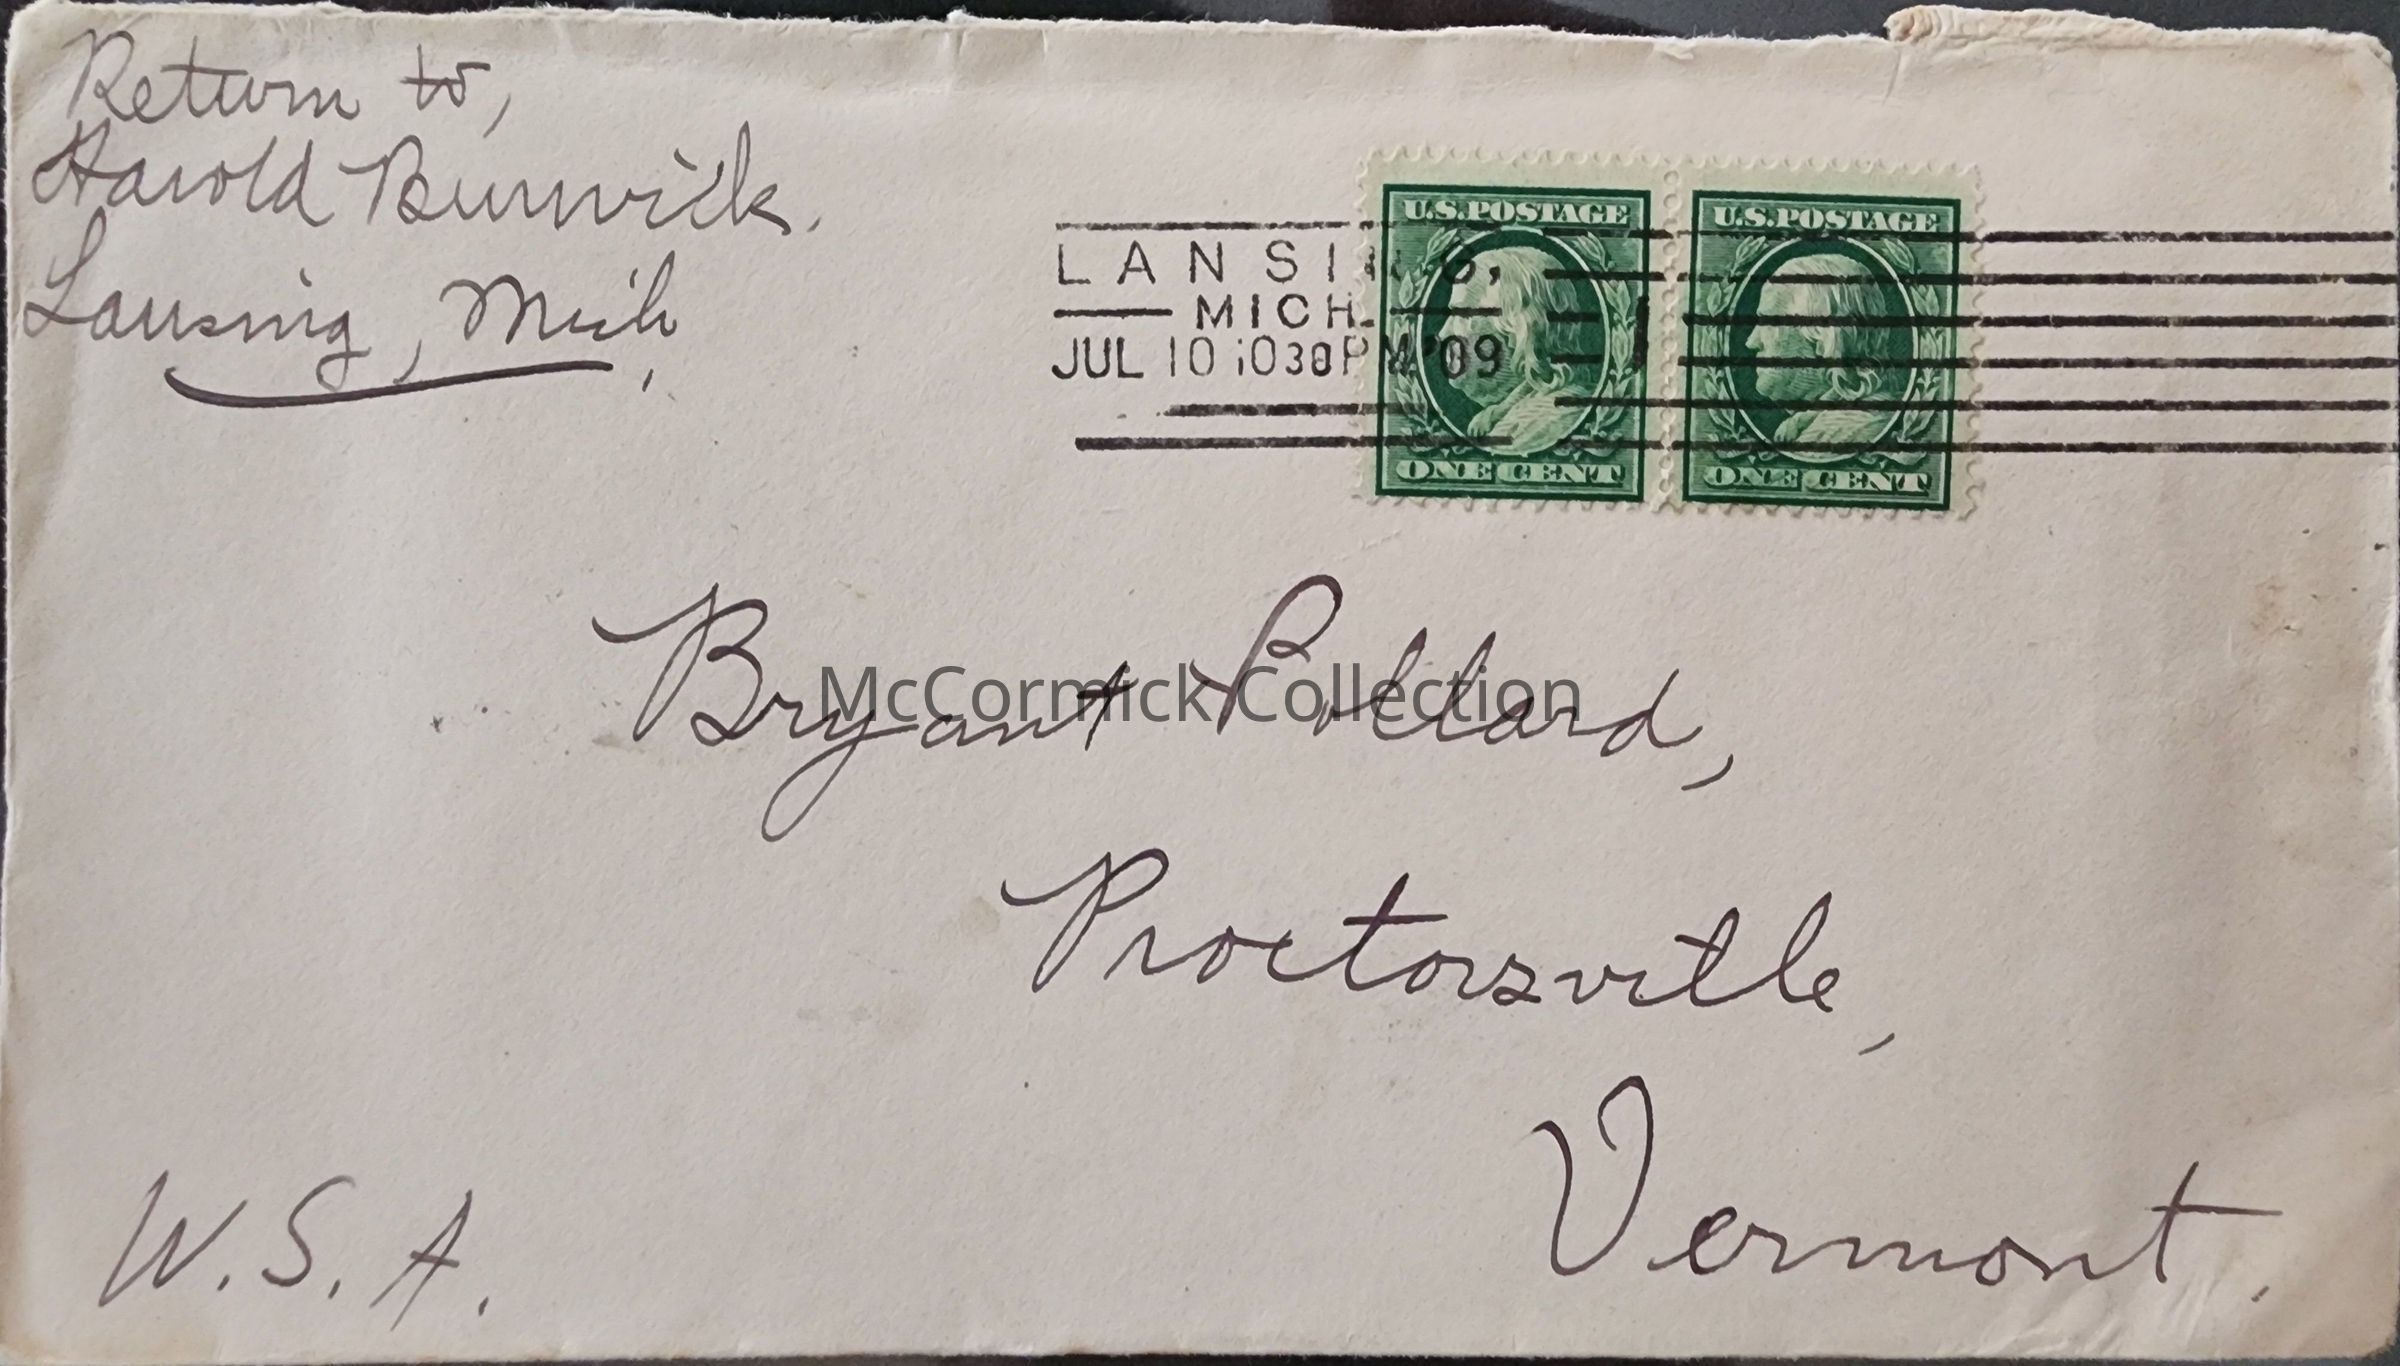 Return to,
Harold Burwick.
Lansing, Mich,
U.S.POSTAGE
U.S.POSTAGE
LANSING,
MICH.
JUL 10 1030PM '09
ONE CENT
ONE CENT
Bryant Pollard,
McCormick Collection
Proctorsville,
Vermont.
W.S.A.